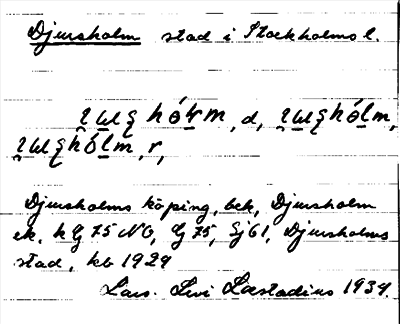 Djursholm stad i Stockholms l.
d,
r,
Djursholms köping, bek, Djursholm
ek, kG 75 NO, G 75, Sj 61, Djursholms
stad, kb 1929
Lars. Levi Læstadius 1939.